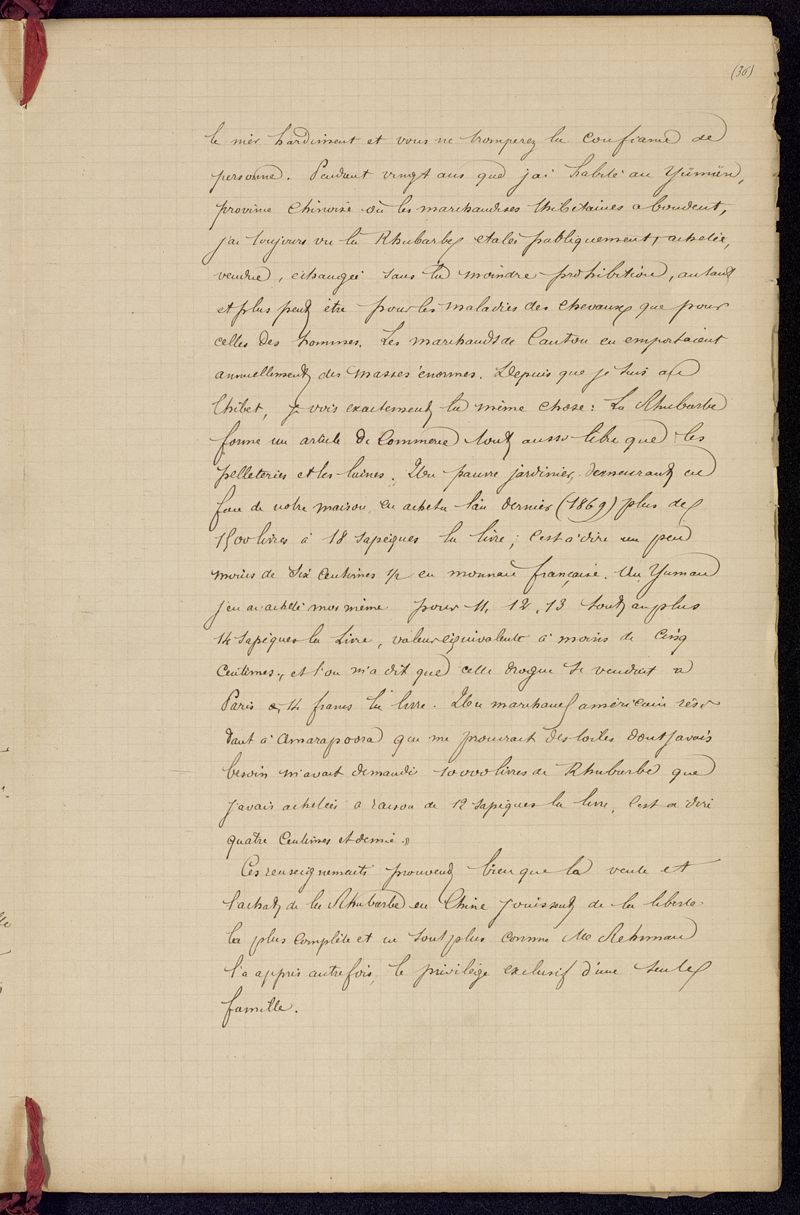 (36)
le nier hardiment et vous ne tromperez la confiance de
personne. Pendant vingt ans que j'ai habité au Yümün,
province Chinoise où les marchandises thibétaines abondent,
j'ai toujours vu la Rhubarbe étalée publiquement, achetée,
vendue, échangée sans la moindre prohibition, autant
et plus peut être pour les maladies des chevaux que pour
celles des hommes. Les marchands de Canton en emportaient
annuellement des masses énormes. Depuis que je suis au
Thibet, je vois exactement la même chose: La Rhubarbe
forme un article de Commerce tout aussi libre que les
pelleteries et les laines. Un pauvre jardinier, demeurant en
face de notre maison, en acheta l'an dernier (1869) plus de
1500 livres à 18 sapèques la livre; c'est à dire un peu
moins de Six Centimes 1/2 en monnaie française. Au Yuman
j'en ai acheté moi même pour 11, 12, 13 tout au plus
14 sapèques la Livre, valeur équivalente à moins de Cinq
Centimes, et l'on m'a dit que cette drogue se vendait à
Paris 14 francs la livre. Un marchand américain rési-
dant à Amarapoora qui me procurait des toiles dont j'avais
besoin m'avait demandé 10000 livres de Rhubarbe que
j'avais achetées à raison de 12 sapèques la livre, c'est à dire
quatre Centimes et demie »
Ces renseignements prouvent bien que la vente et
l'achat de la Rhubarbe en Chine jouissent de la liberté
la plus complète et ne sont plus comme Mr Rehmann
l'a appris autrefois, le privilège exclusif d'une seule
famille.